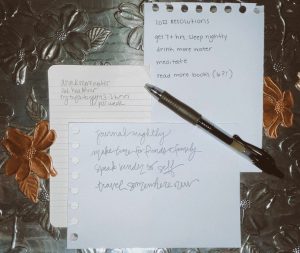 2012 RESOLUTIONS
get 7+ hrs. sleep nightly
drink more water
meditate
read more books (6?!)
drink more water
eat healthier
per week
journal nightly
make time for friends + family
speak kinder to self
travel somewhere new